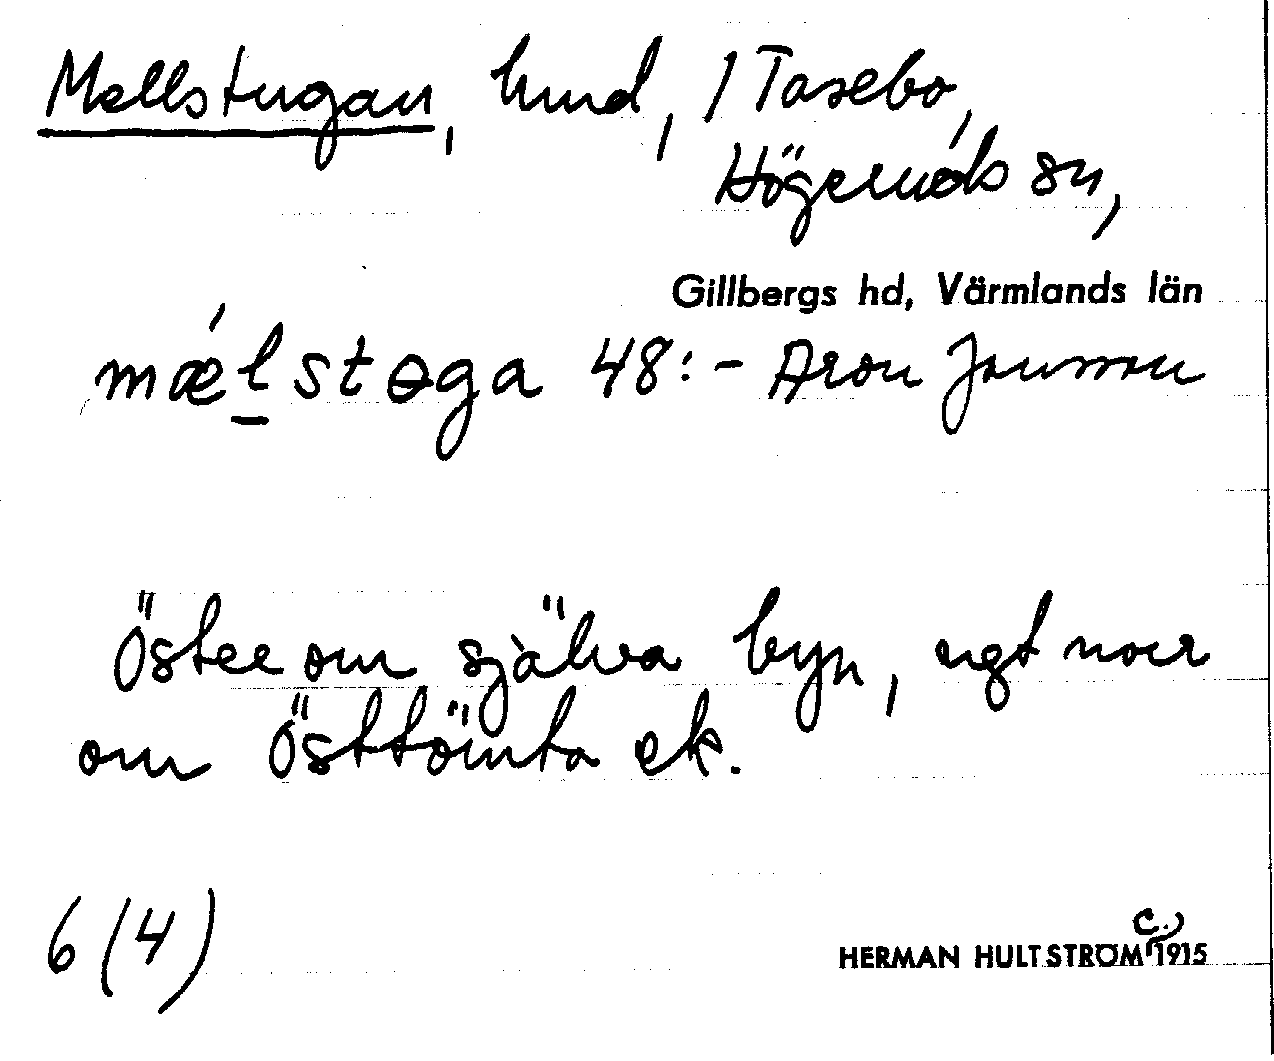 Mellstugan, hmd, 1 Tasebo,
Högeruds sn,
Gillbergs hd, Värmlands län
mǽl̲stɵga 48:- Aron Jansson
Öster om själva byn, ngt norr
om Östtömta ek.
6 (4)
HERMAN HULTSTRÖM c. 1915